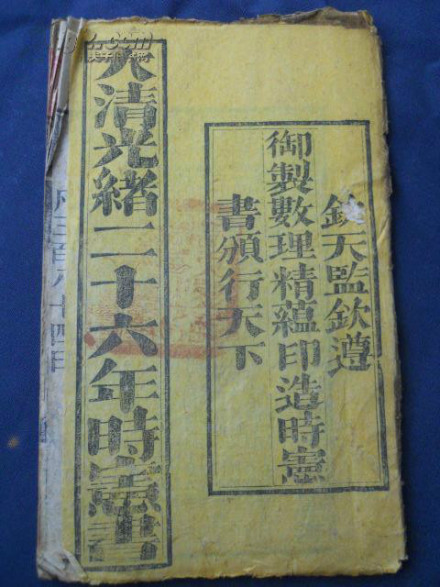 欽天監欽遵
御製數理精蘊印造時憲
書頒行天下
大清光緒二十六年時憲書
凡三百八十四日